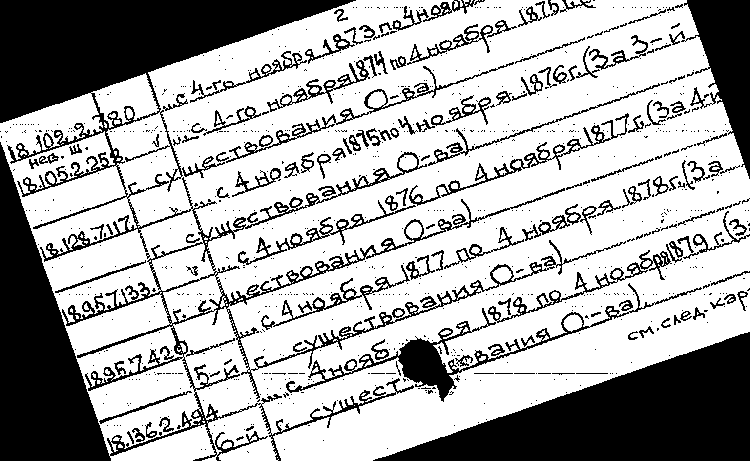 2
...с 4-го ноября 1873 по 4 ноября
18.102.2.380 ...с 4-го ноября 1874 по 4 ноября 1875 г. (
нед. щ. г. существования О-ва)
18.105.2.258. ... с 4 ноября 1875 по 4 ноября 1876 г. (За 3-й
г. существования О-ва)
18.128.7.117. ... с 4 ноября 1876 по 4 ноября 1877 г. (За 4-й
г. существования О-ва)
18.95.7.133. ... с 4 ноября 1877 по 4 ноября 1878 г. (За
18.95.7.420. 5-й г. существования О-ва)
... с 4 нояб ря 1878 по 4 ноября 1879 г. (За
18.136.2.494 6-й г. сущест вования О-ва).
см. след. кар